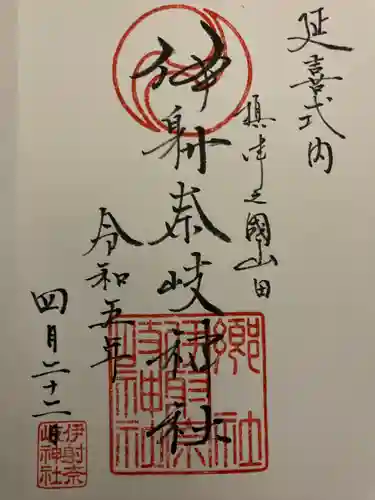 延喜式内
摂津之國山田
伊射奈岐神社
令和五年
四月二十二
郷社
伊射奈
岐神社
伊射奈
岐神社